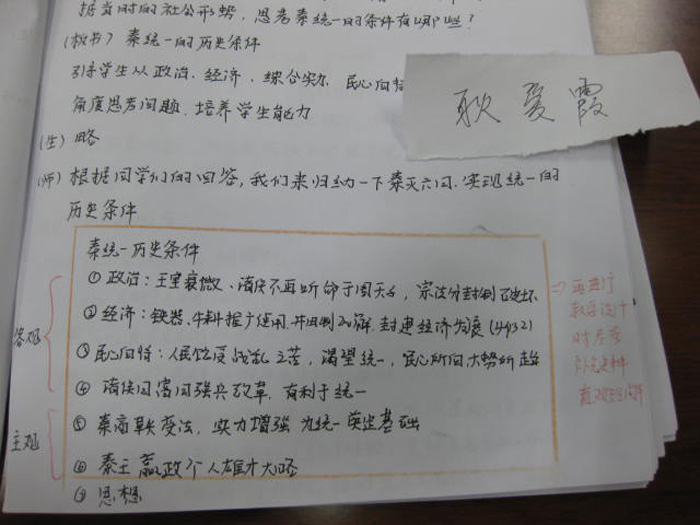 据当时的社会形势，思考秦统一的条件有哪些？
(板书) 秦统一的历史条件
引导学生从政治、经济、综合实力、民心向背
角度思考问题、培养学生能力
(生) 略
(师) 根据同学们的回答，我们来归纳一下秦灭六国、实现统一的
历史条件
耿爱霞
秦统一历史条件
① 政治：王室衰微、诸侯不再听命于周天子，宗法分封制已破坏
② 经济：铁器、牛耕推广使用，井田制瓦解，封建经济发展
③ 民心向背：人民饱受战乱之苦，渴望统一，民心所向大势所趋
④ 诸侯国富国强兵改革，有利于统一
⑤ 秦商鞅变法，实力增强 为统一奠定基础
⑥ 秦王嬴政个人雄才大略
⑦ 思想
客观
主观
教学设计
时尽量